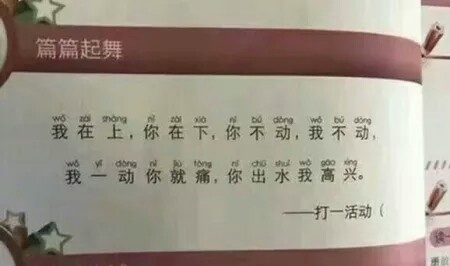 篇篇起舞
wǒ zài shàng nǐ zài xià nǐ bú dòng wǒ bú dòng
我在上，你在下，你不动，我不动，
wǒ yī dòng nǐ jiù tòng nǐ chū shuǐ wǒ gāo xìng
我一动你就痛，你出水我高兴。
——打一活动（
读一
重